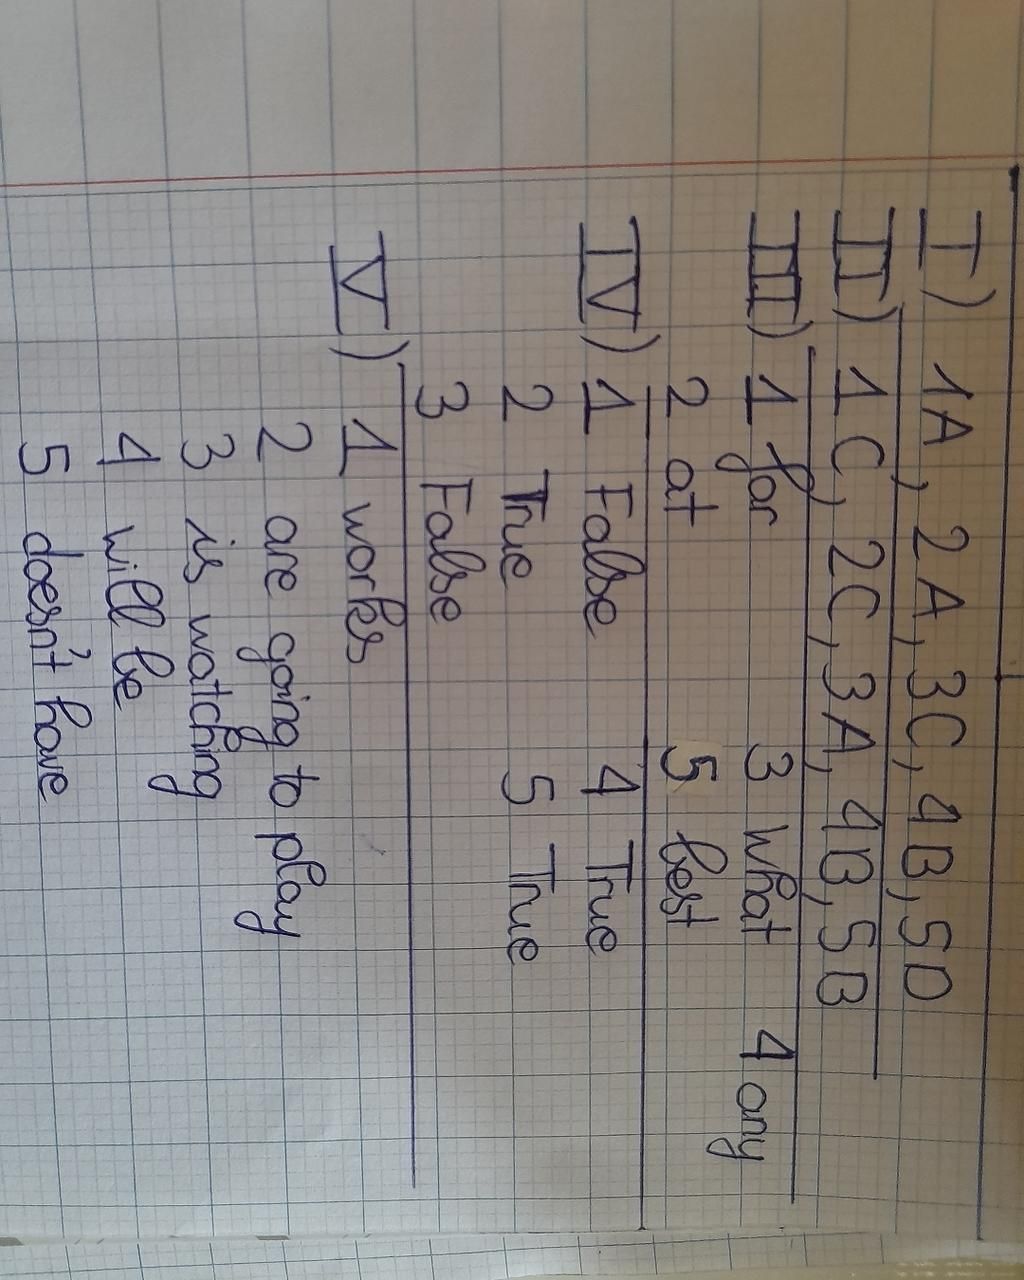 I) 1A, 2A, 3C, 4B, 5D
II) 1C, 2C, 3A, 4B, 5B
III) 1 for 3 what 4 any
2 at 5 best
IV) 1 False 4 True
2 True 5 True
3 False
V) 1 works
2 are going to play
3 is watching
4 will be
5 doesn't have